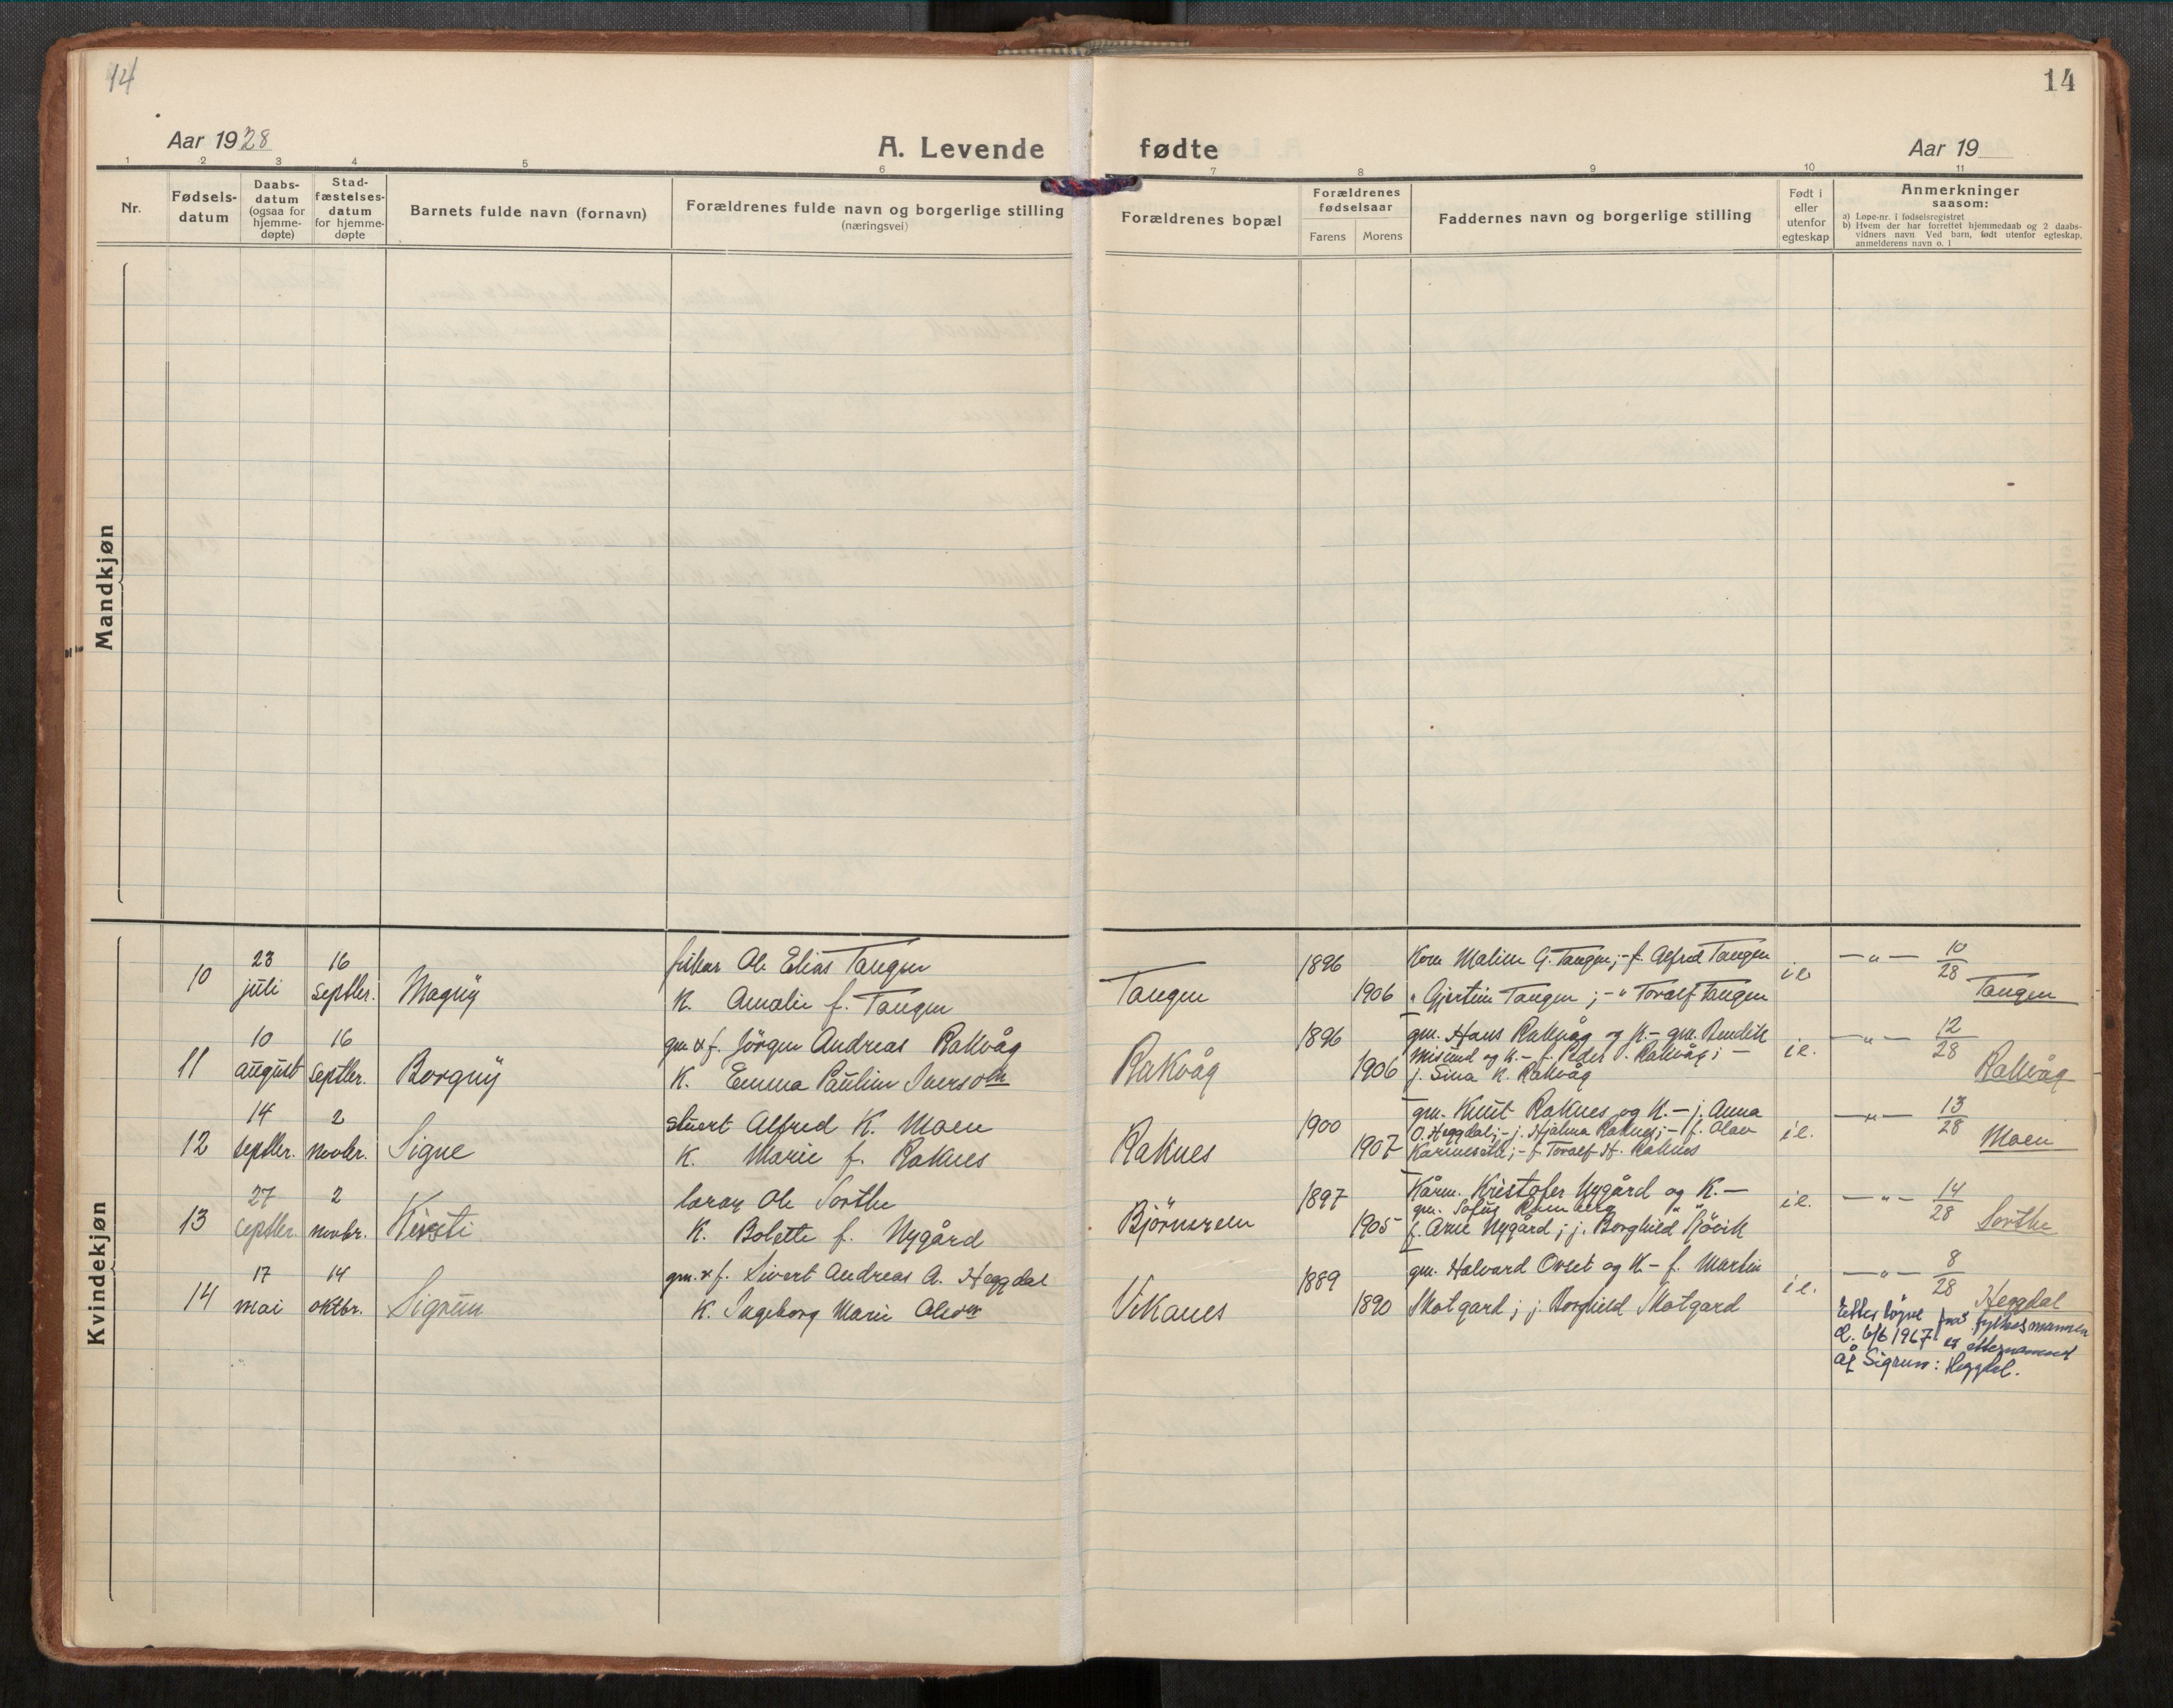 14
14
Aar 1928
A. Levende
fødte
Aar 19
1 2 3 4 5 6 7 8 9 10 11
Nr.
Fødsels-
datum
Daabs-
datum
(ogsaa for
hjemme-
døpte)
Stad-
fæstelses-
datum
for hjemme-
døpte
Barnets fulde navn (fornavn)
Forældrenes fulde navn og borgerlige stilling
(næringsvei)
Forældrenes bopæl
Forældrenes
fødselsaar
Farens
Morens
Faddernes navn og borgerlige stilling
Født i
eller
utenfor
egteskap
Anmerkninger
saasom:
a) Løpe-nr. i fødselsregistret
b) Hvem der har forrettet hjemmedaab og 2 daabs-
vidners navn Ved barn, født utenfor egteskap,
anmelderens navn o. l
Mandkjøn
Kvindekjøn
10
23
juli
16
septbr.
Magny
fisker Ole Elias Tangen
K. Amalie f. Tangen
Tangen
1896
1906
Kone Malene G. Tangen; - f. Alfred Tangen
" Gjertine Tangen; - " Toralf Tangen
i e
— " — 10/28
Tangen
11
10
august
16
septbr.
Borgny
gm & f. Jörgen Andreas Rakvåg
K. Emma Pauline Iversdtr
Rakvåg
1896
1906
gm. Hans Rakvåg og K. - gm. Bendik
Misund og K. - f. Peder P. Rakvåg; -
j. Sina K. Rakvåg
i e.
— " — 12/28
Rakvåg
12
14
septbr.
2
novbr.
Signe
stuert Alfred K. Moen
K. Marie f. Raknes
Raknes
1900
1907
gm. Knut Raknes og K. - j. Anna
O. Heggdal; - j. Hjalma Raknes; - f. Olav
f. Toralf H. Raknes
i e.
— " — 13/28
Moen
13
27
septbr.
2
novbr.
Kirsti
lærer Ole Sorthe
K. Bolette f. Nygård
Björnerem
1897
1905
Kårm. Kristofer Nygård og K. -
gm. Sofus " "
f. Arne Nygård; j. Borghild Sjövik
i e.
— " — 14/28
Sorthe
14
17
mai
14
oktbr.
Sigrun
gm. & f. Sivert Andreas A. Heggdal
K. Ingeborg Marie Olsdtr
Vikanes
1889
1890
gm. Halvard Orset og K - f. Martin
Skotgard; j. Borghild Skotgard
i e.
— " — 8/28
Heggdal
Etter løyve frå fylkesmannen
d. 6/6 1967 er etternamnet
åt Sigrun: Heggdal.